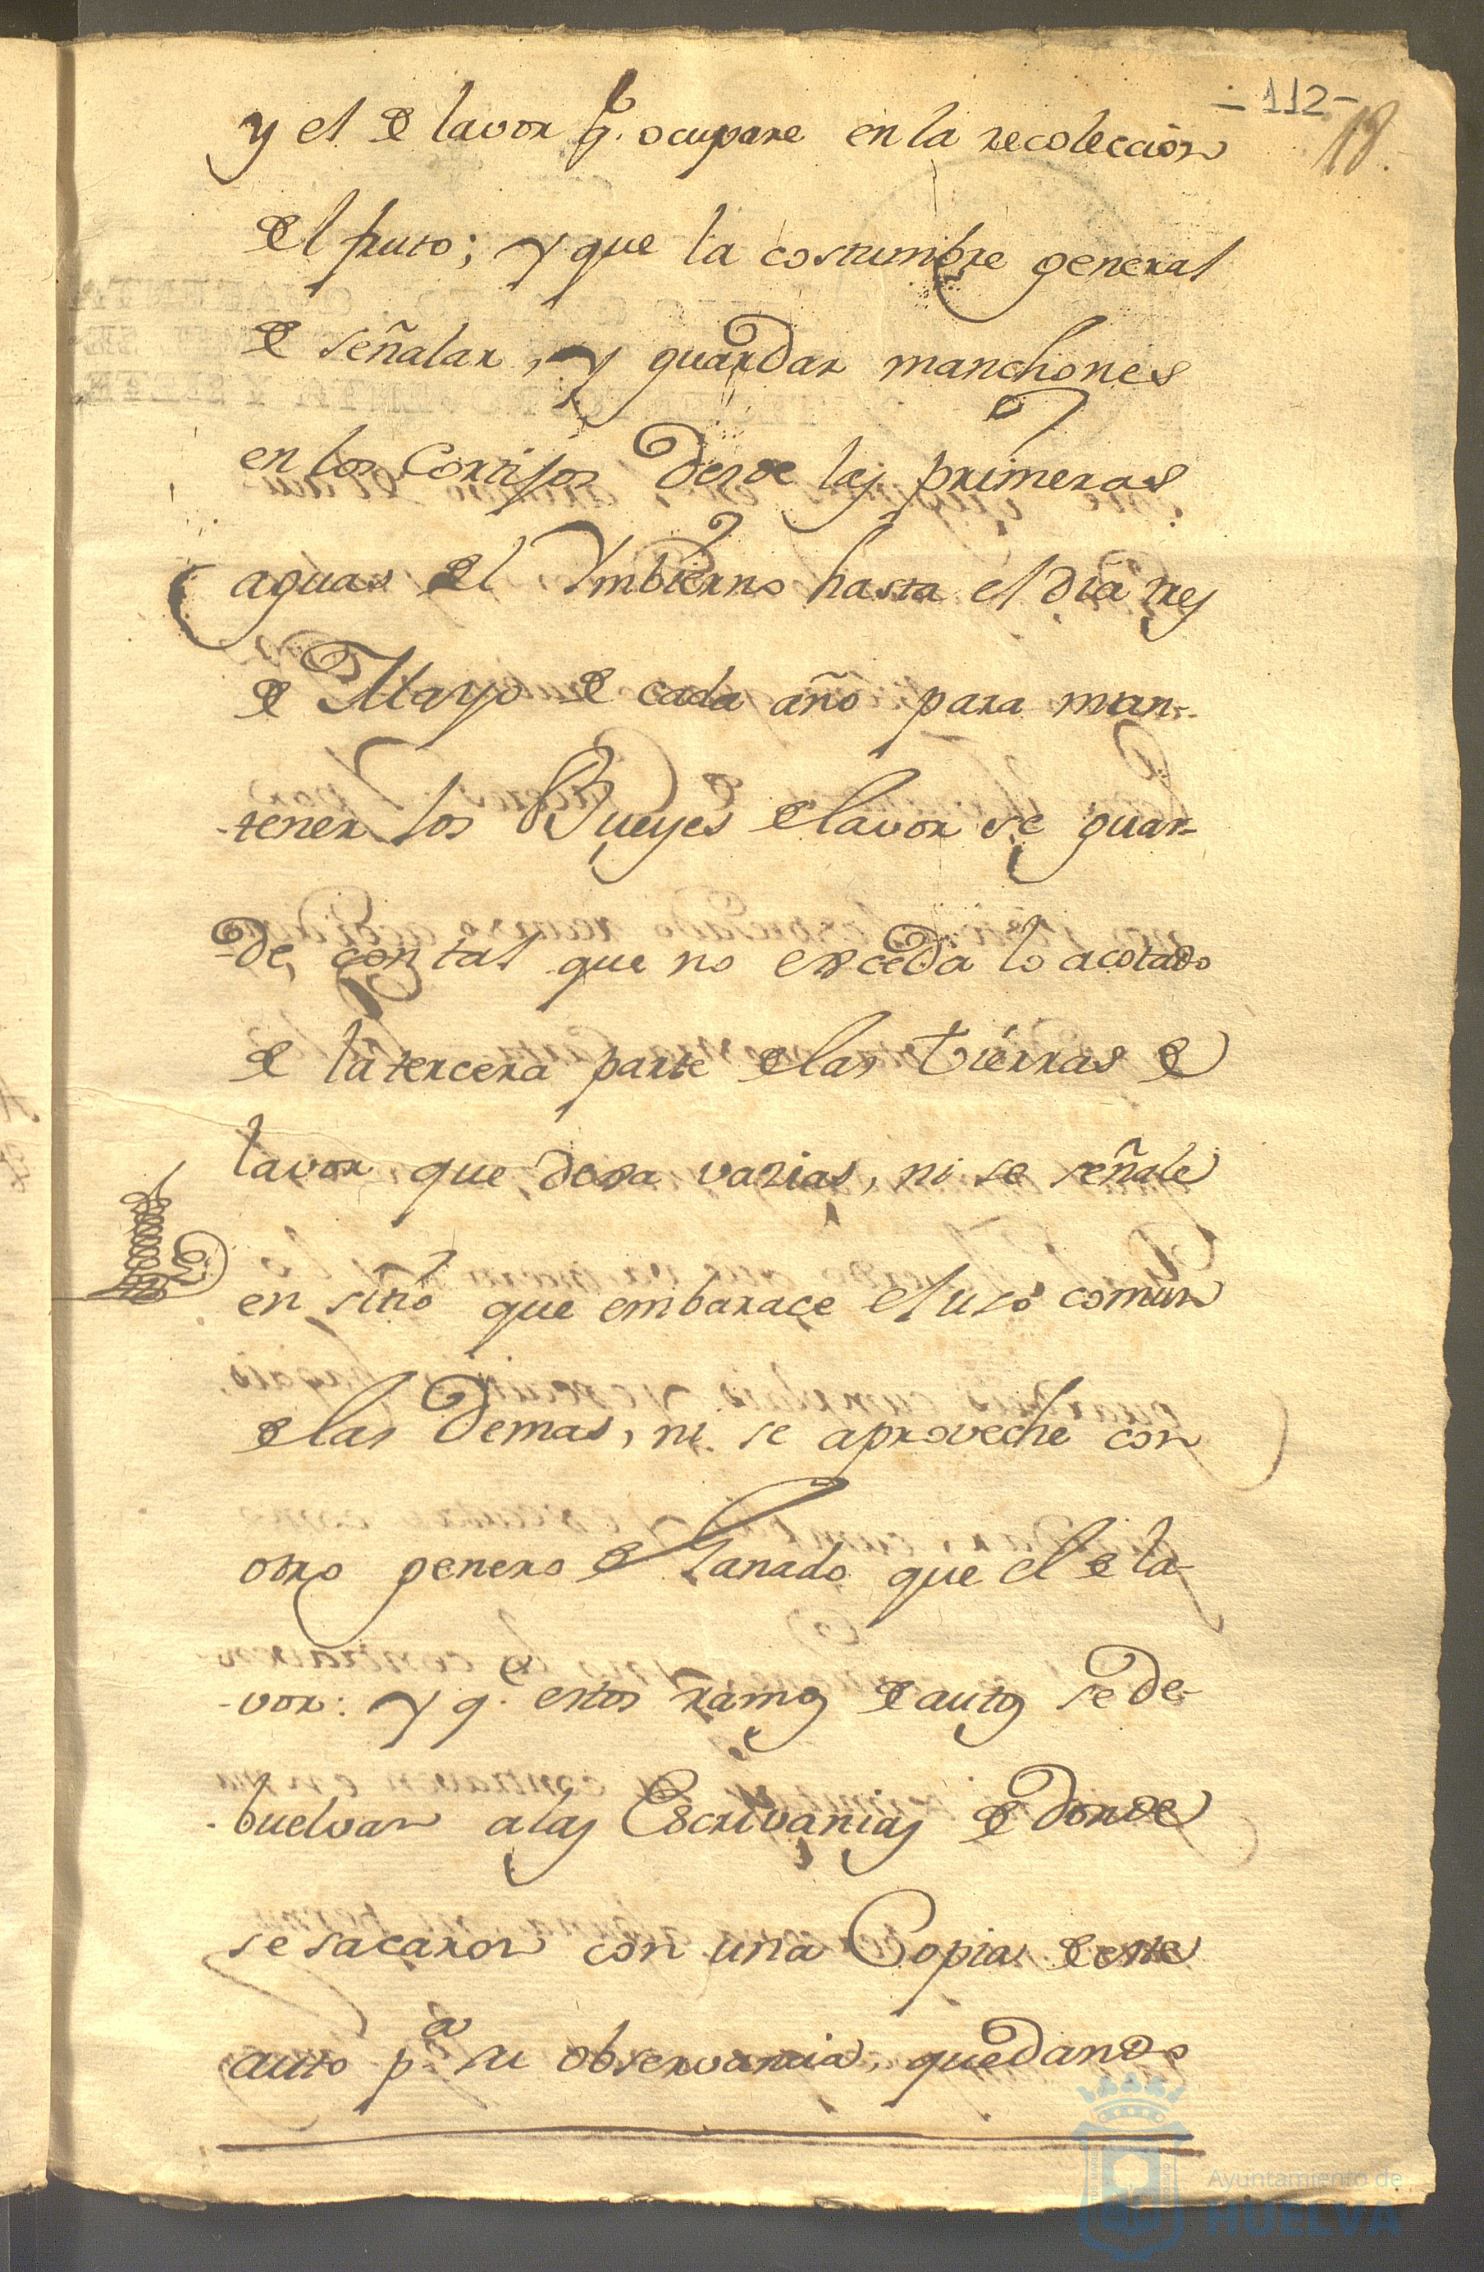 -112-
18.
y el de lavor q. ocupare en la recoleccion
del fruto; y que la costumbre general
de señalar, y guardar manchones
en los Cortijos desde las primeras
aguas del Ymbierno hasta el dia tres
de Mayo de cada año para man-
-tener los Bueyes de lavor se guar-
-de, con tal que no exceda lo acotado
de la tercera parte de las tierras de
lavor que dexa varias, ni se señale
en sitio que embarace el uso comun
de las demas, ni se aproveche con
otro genero de Ganado que el de la-
-vor: y q.e estos ramos de autos se de-
-buelvan a las Escrivanias de donde
se sacaron con una Copia de este
auto p.a su observancia, quedando
Ayuntamiento de
HUELVA